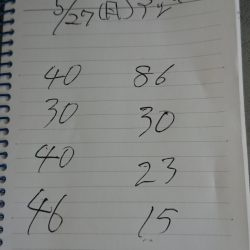 5/27(月)
40 86
30 30
40 23
46 15